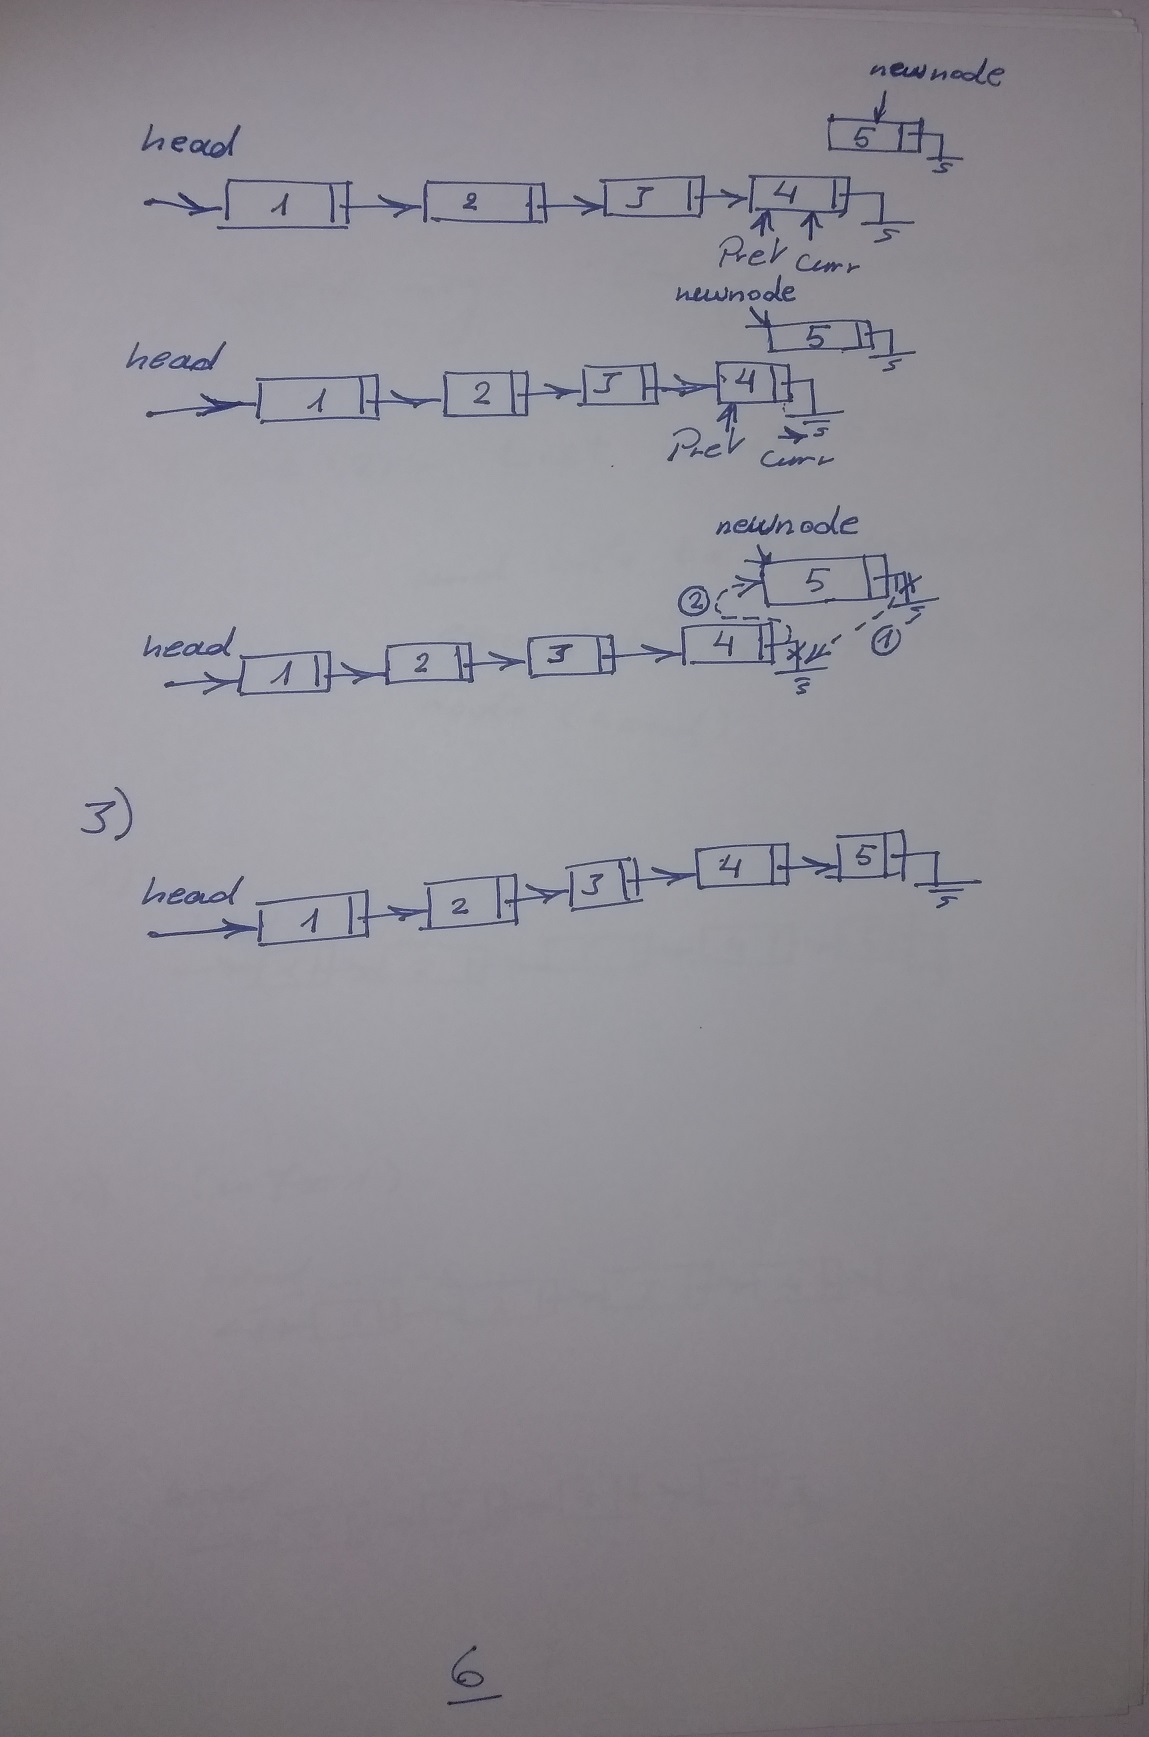 newnode
5
head
1 2 3 4
Prev Curr
newnode
5
head
1 2 3 4
Prev Curr
newnode
5
2
1
head
1 2 3 4
3)
head
1 2 3 4 5
6